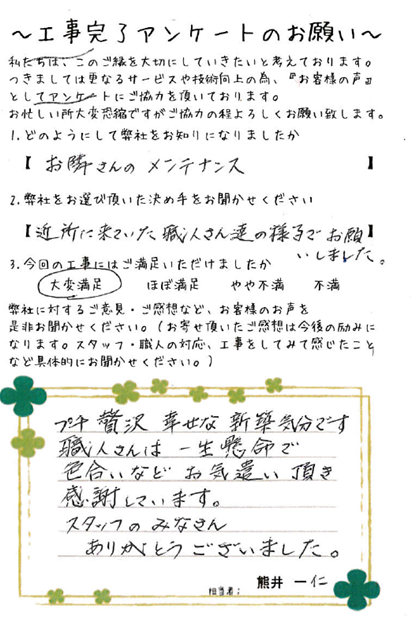 ～工事完了アンケートのお願い～
私たちは、このご縁を大切にしていきたいと考えております。
つきましては更なるサービスや技術向上の為、『お客様の声』
としてアンケートにご協力を頂いております。
お忙しい所大変恐縮ですがご協力の程よろしくお願い致します。
1.どのようにして弊社をお知りになりましたか
【 お隣さんの メンテナンス 】
2.弊社をお選び頂いた決め手をお聞かせください
【近所に来ていた 職人さん達の様子で お願】
いしました。
3.今回の工事にはご満足いただけましたか
大変満足 ほぼ満足 やや不満 不満
弊社に対するご意見・ご感想など、お客様のお声を
是非お聞かせください。(お寄せ頂いたご感想は今後の励みに
なります。スタッフ・職人の対応、工事をしてみて感じたこと
など具体的にお聞かせください。)
プチ 贅沢 幸せな 新築気分です
職人さんは 一生懸命で
色合いなど お気遣い 頂き
感謝しています。
スタッフの みなさん
ありがとうございました。
担当者: 熊井 一仁